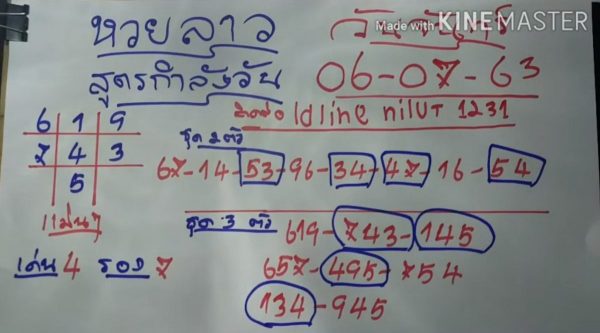 หวยลาว วันจันทร์
Made with KINEMASTER
สูตรกำลังวัน 06-07-63
ติดต่อ Idline nilUT 1231
6 1 9
7 4 3
5
แม่นๆ
ชุด 2 ตัว
67-14-53-96-34-47-16-54
ชุด 3 ตัว 619-743-145
เด่น 4 รอง 7 657-495-754
134-945